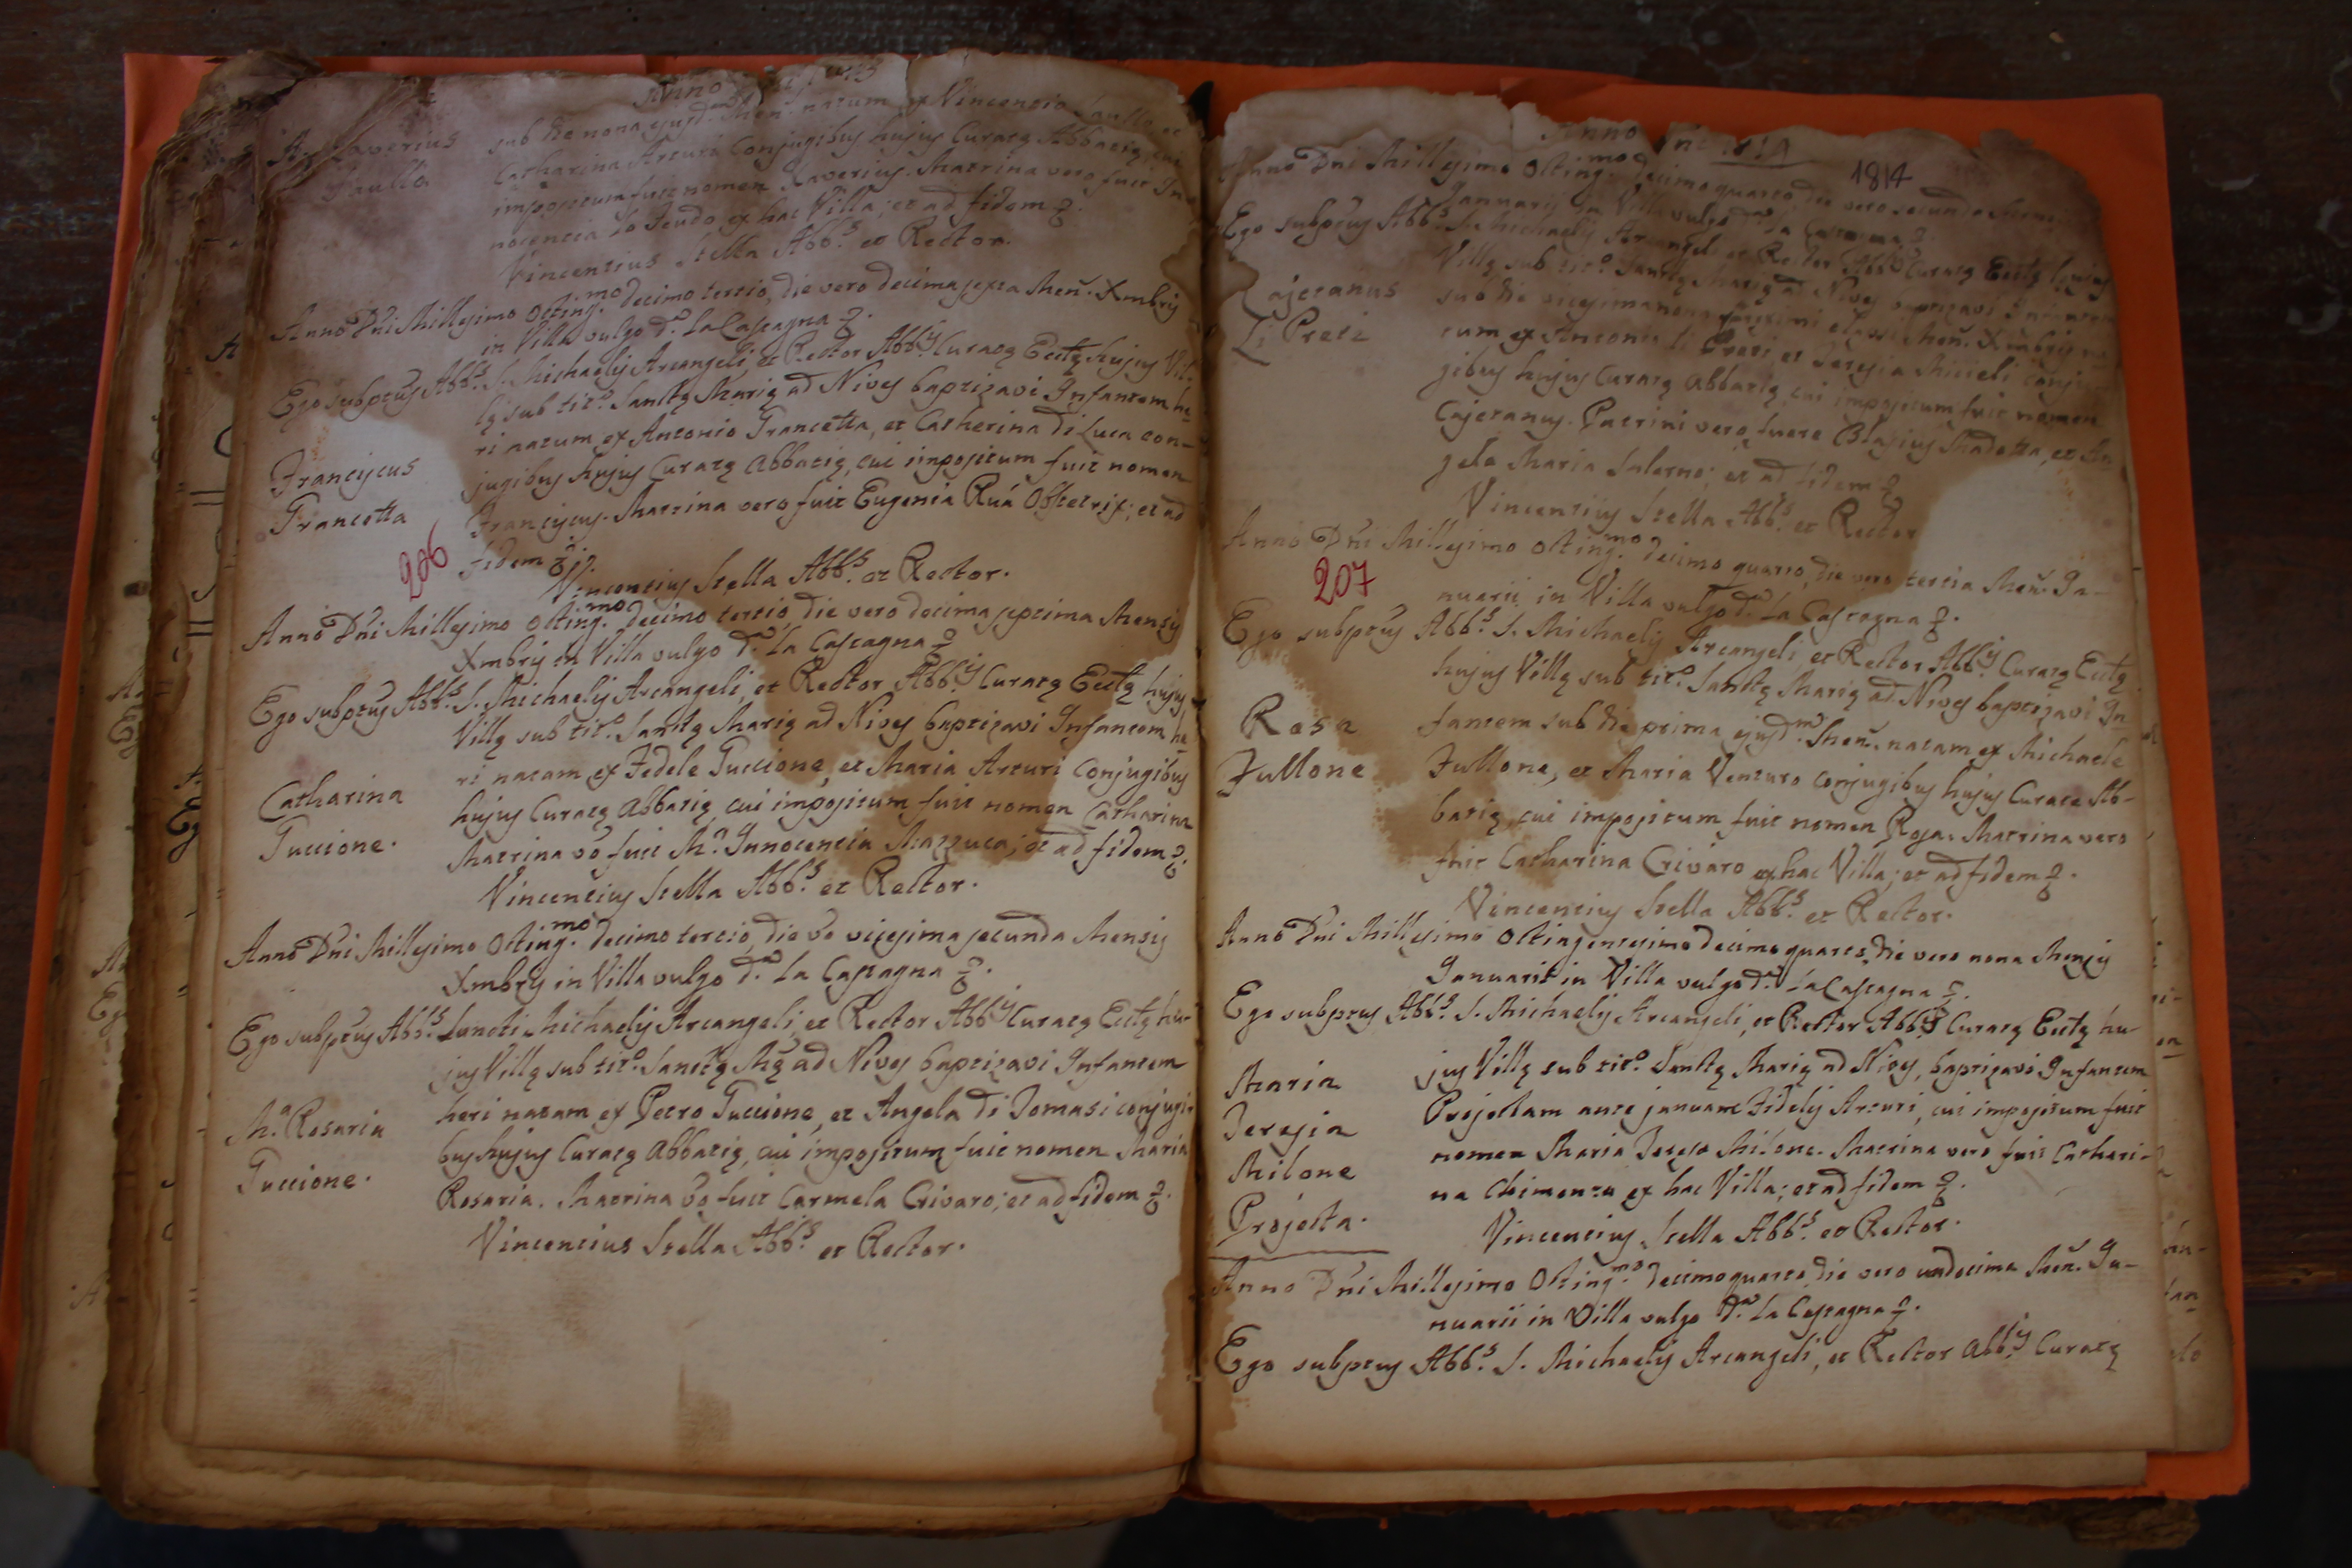 Anno
sub die nona ejusd.m Men. natum ex Vincentio Saullo, et
Xaverius
Saullo
Catharina Arturi Conjugibus hujus Curatę Abbatię, cui
impositum fuit nomen Xaverius. Matrina vero fuit In
nocentia Lo Feudo ex hac Villa; et ad fidem
Vincentius Stella Abb.s et Rector.
Anno Dni Millesimo Octing.mo decimo tertio, die vero decima sexta Men. Xmbris
in Villa vulgo d.a La Castagna
Ego subptus Abb.s S. Michaelis Arcangeli, et Rector Abb.is Curatę Eccltę hujus Vil
lę sub tit.o Sanctę Marię ad Nives baptizavi Infantem he
ri natum ex Antonio Grancetta, et Catherina di Luca con-
Franciscus
Grancetta
jugibus hujus Curatę Abbatię, cui impositum fuit nomen
Franciscus. Matrina vero fuit Eugenia Ruá Obstetrix; et ad
206
fidem
Vincentius Stella Abb.s et Rector.
Anno Dni Millesimo Octing.mo decimo tertio, die vero decima septima Mensis
Xmbris in Villa vulgo d.a La Castagna
Ego subptus Abb.s S. Michaelis Arcangeli, et Rector Abb.is Curatę Eccltę hujus
Villę sub tit.o Sanctę Marię ad Nives baptizavi Infantem he
ri natam ex Fedele Guccione, et Maria Arturi Conjugibus
Catharina
Guccione.
hujus Curatę Abbatię, cui impositum fuit nomen Catharina
Matrina vo fuit M.a Innocentia Mazzuca; et ad fidem
Vincentius Stella Abb.s et Rector.
Anno Dni Millesimo Octing.mo decimo tertio, die vo vicesima secunda Mensis
Xmbris in Villa vulgo d.a La Castagna
Ego subptus Abb.s Sancti Michaelis Arcangeli, et Rector Abb.is Curatę Eccltę hu-
jus Villę sub tit.o Sanctę Mę ad Nives baptizavi Infantem
heri natam ex Petro Guccione, et Angela di Tomasi conjugi-
M.a Rosaria
Guccione.
bus hujus Curatę Abbatię, cui impositum fuit nomen Maria
Rosaria. Matrina vo fuit Carmela Crivaro; et ad fidem
Vincentius Stella Abb.s et Rector.
Anno
1814
Anno Dni Millesimo Octing.mo decimo quarto die vero secunda Mensis
Januarii in Villa vulgo d.a La Castagna
Ego subptus Abb.s S. Michaelis Arcangeli et Rector Abb.is Curatę Eccltę hujus
Villę sub tit.o Sanctę Marię ad Nives baptizavi Infantem
Cajetanus
Li Preti
sub die vicesima nona Men. Xmbris na
tum ex Antonio li Preti et Teresia Micieli conju
gibus hujus Curatę Abbatię, cui impositum fuit nomen
Cajetanus. Patrini vero fuere Blasius Madotta, et An
gela Maria Salerno; et ad fidem
Vincentius Stella Abb.s et Rector
Anno Dni Millesimo Octing.mo decimo quarto, die vero tertia Men. Ja-
207
nuarii in Villa vulgo d.a La Castagna
Ego subptus Abb.s S. Michaelis Arcangeli et Rector Abb.is Curatę Eccltę
hujus Villę sub tit.o Sanctę Marię ad Nives baptizavi In
Rosa
Fullone
fantem sub die prima ejusd.m Men. natam ex Michaele
Fullone, et Maria Venturo conjugibus hujus Curatę Ab-
batię, cui impositum fuit nomen Rosa. Matrina vero
fuit Catharina Crivaro ex hac Villa; et ad fidem
Vincentius Stella Abb.s et Rector.
Anno Dni Millesimo Octingentesimo decimo quarto, die vero nona Mensis
Januarii in Villa vulgo d.a La Castagna
Ego subptus Abb.s S. Michaelis Arcangeli, et Rector Abb.is Curatę Eccltę hu-
jus Villę sub tit.o Sanctę Marię ad Nives, baptizavi Infantem
Maria
Teresia
Milone
Projecta.
Projectam ante januam Fidelis Arturi, cui impositum fuit
nomen Maria Teresia Milone. Matrina vero fuit Cathari-
na Chimenta ex hac Villa; et ad fidem
Vincentius Stella Abb.s et Rector.
Anno Dni Millesimo Octing.mo decimo quarto, die vero undecima Men. Ja-
nuarii in Villa vulgo d.a La Castagna
Ego subptus Abb.s S. Michaelis Arcangeli, et Rector Abb.is Curatę